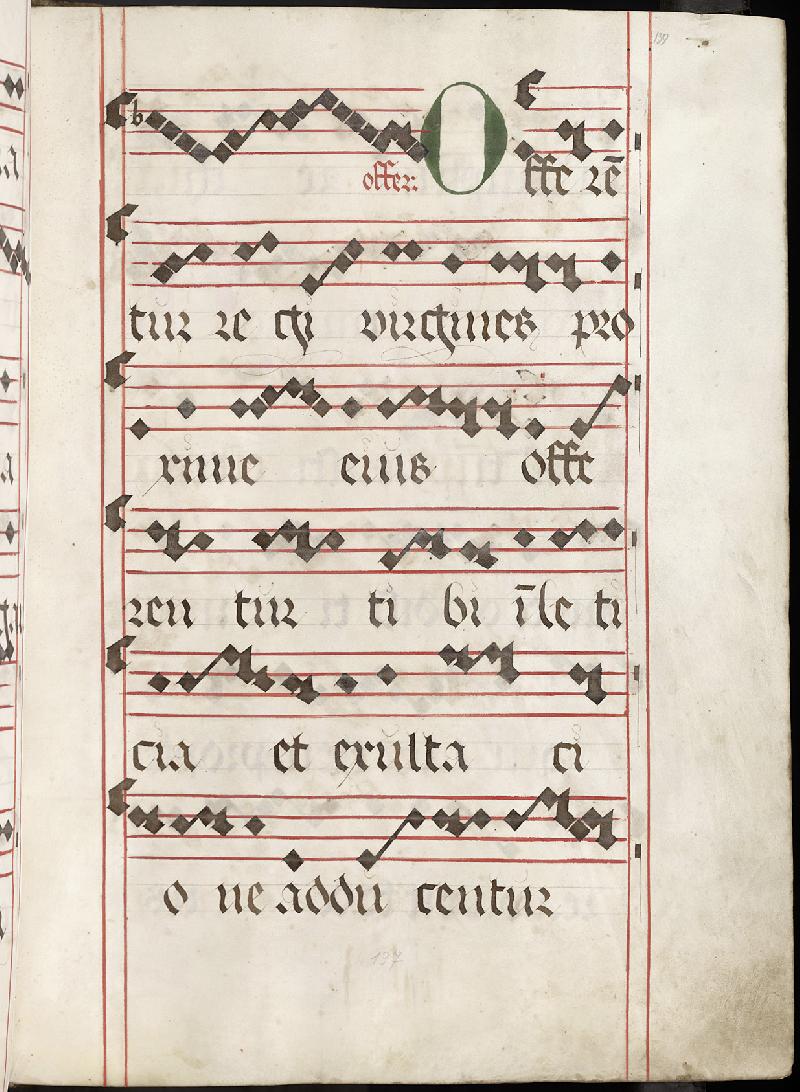 offer:
Offerē
tur regi virgines pro
xime eius offe
ren tur ti bi ī le ti
cia et exulta ci
o ne addu centur
197